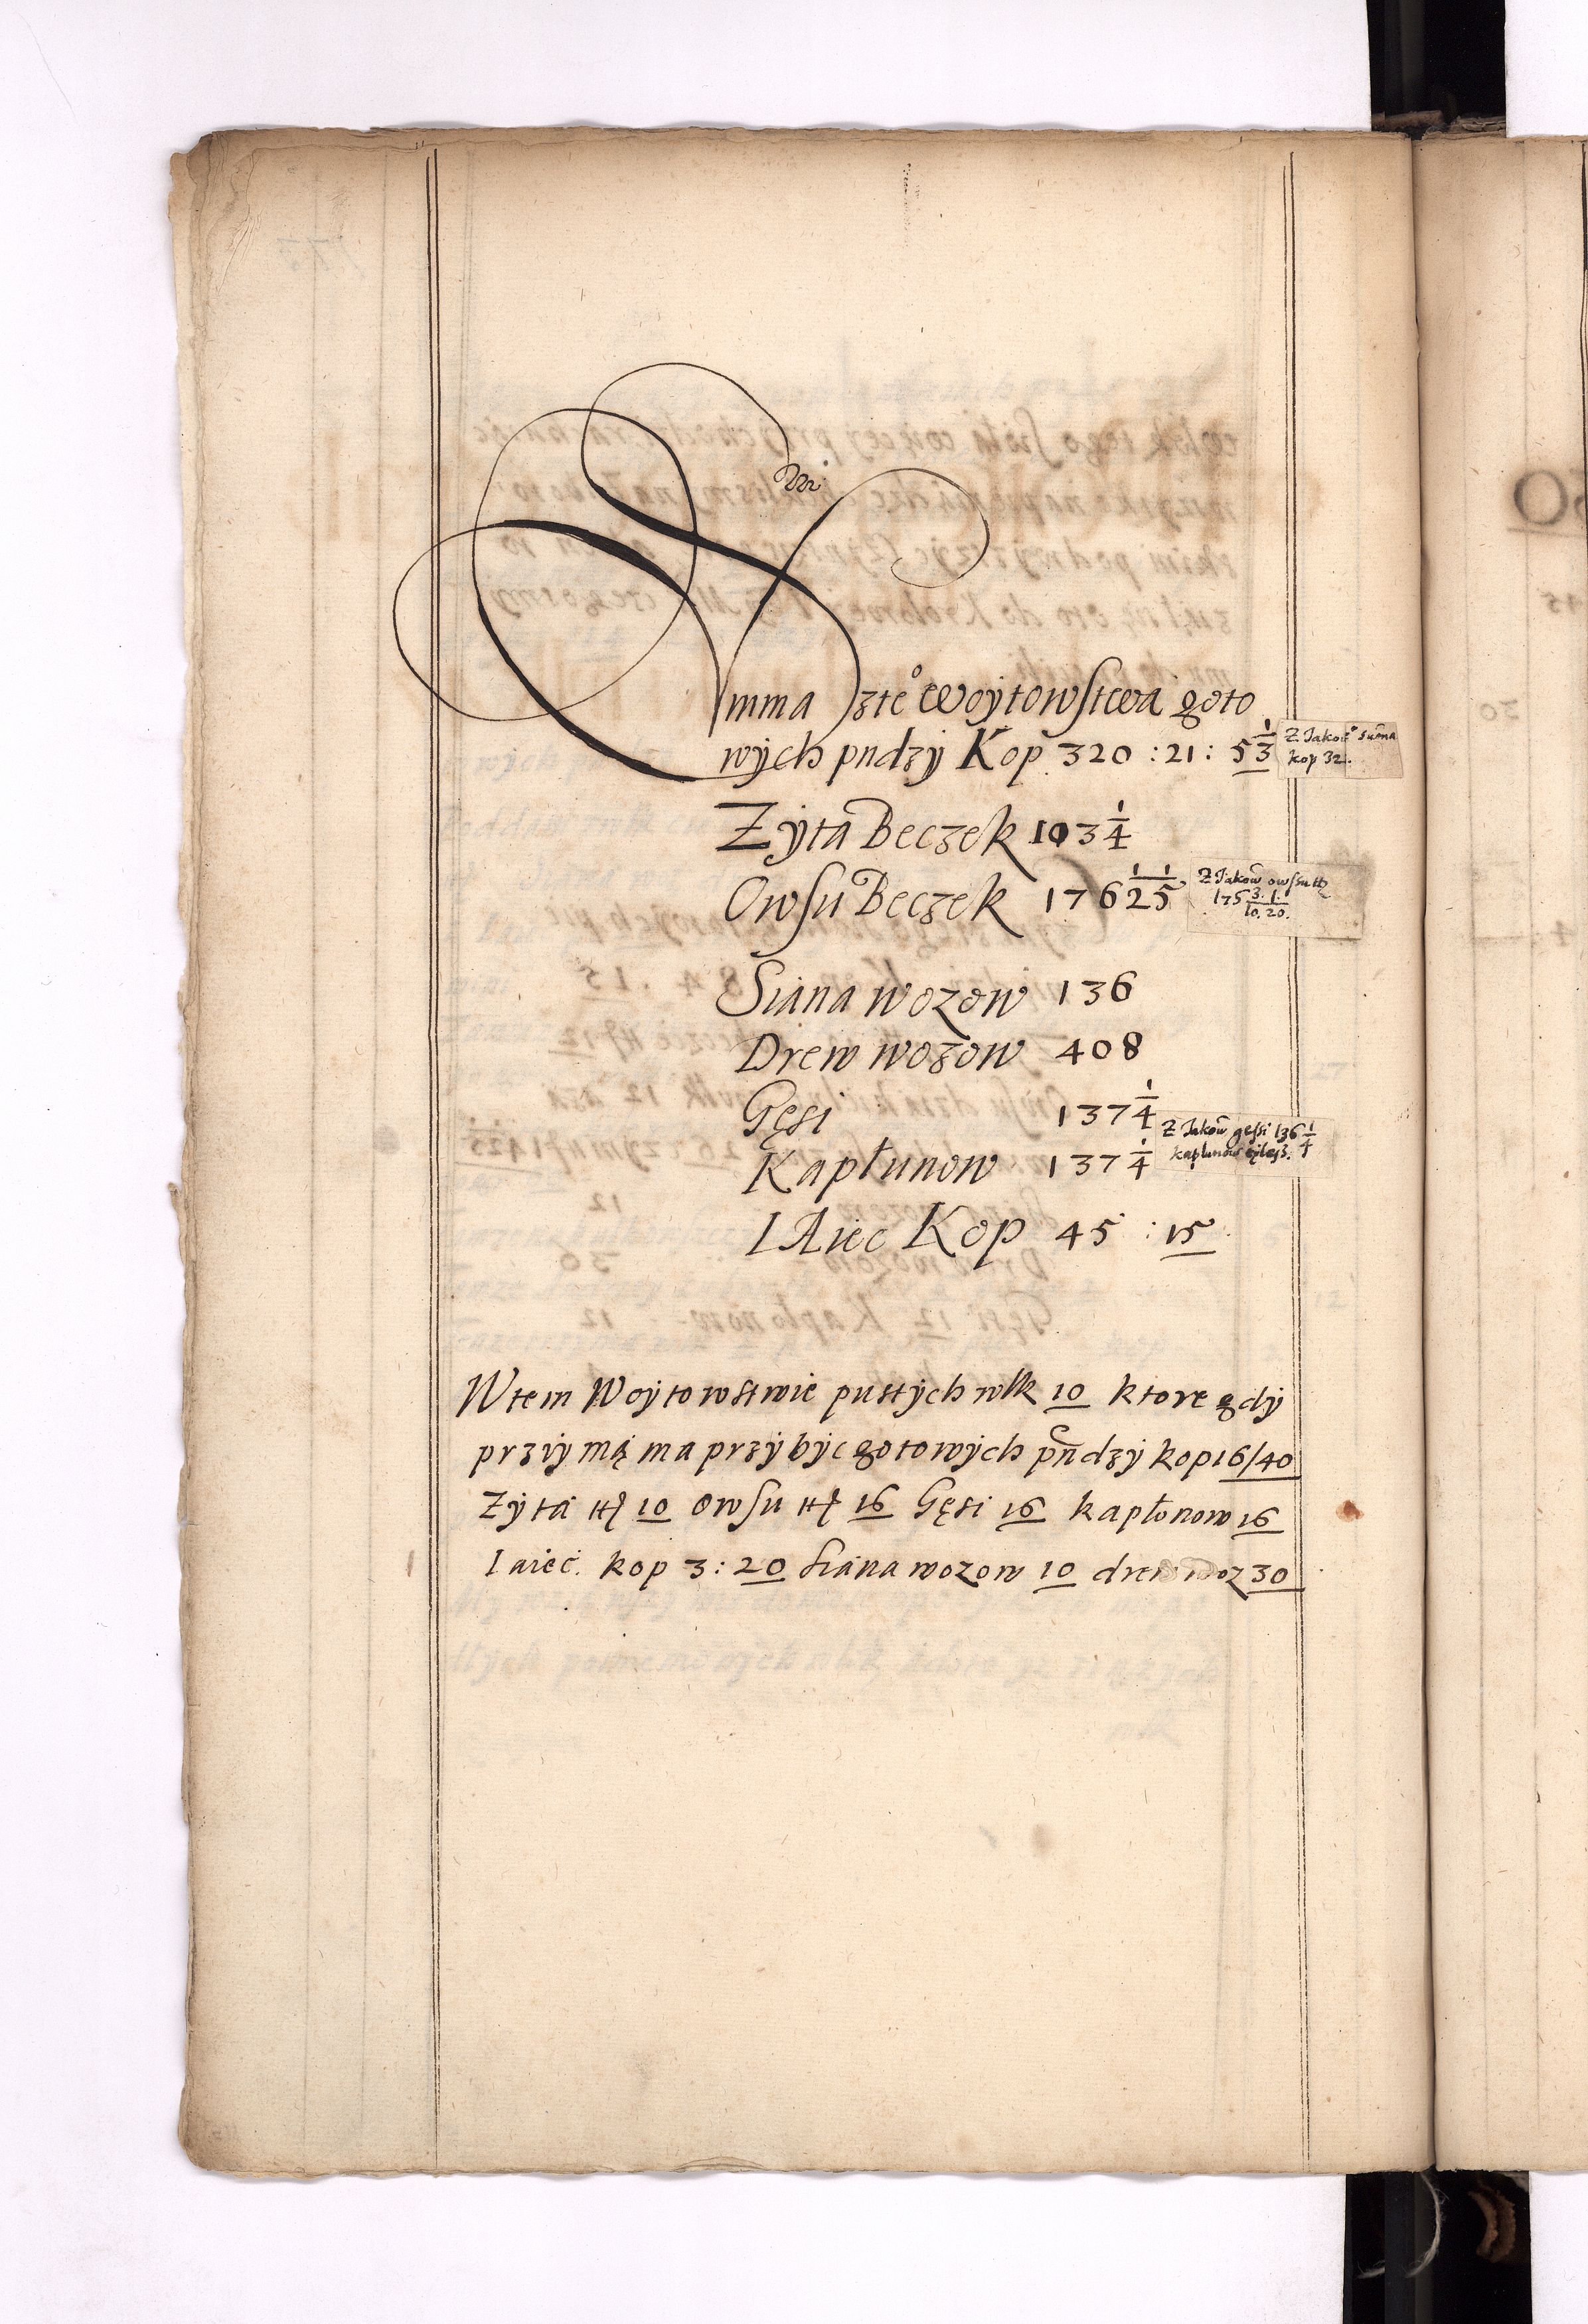 Summa zte° Woÿtowſtwa goto
wÿch pndzÿ Kop 320 : 21 : 5 1/3
Z Jakoć° Suma
kop 32.
Zÿta Beczek 103 1/4
Owſu Beczek 176 1/2 1/5
Z Jakow owſsu
175 3/10. 1/20.
Siana wozow 136
Drew wozow 408
Gęsi 137 1/4
Kapłunow 137 1/4
Z Jakow geſsi 136 1/4
kapłunow
IAiec Kop 45 : 15
Wtem Woÿtowstwie pustÿch wlk 10 ktore gdÿ
przÿimą ma przÿbÿc gotowÿch pn̄dzÿ kop 16/40
Zÿta 10 Owſu 16 Gęsi 16 kapłonow 16
Iaiec. kop 3 : 20 Siana wozow 10 drew woz 30